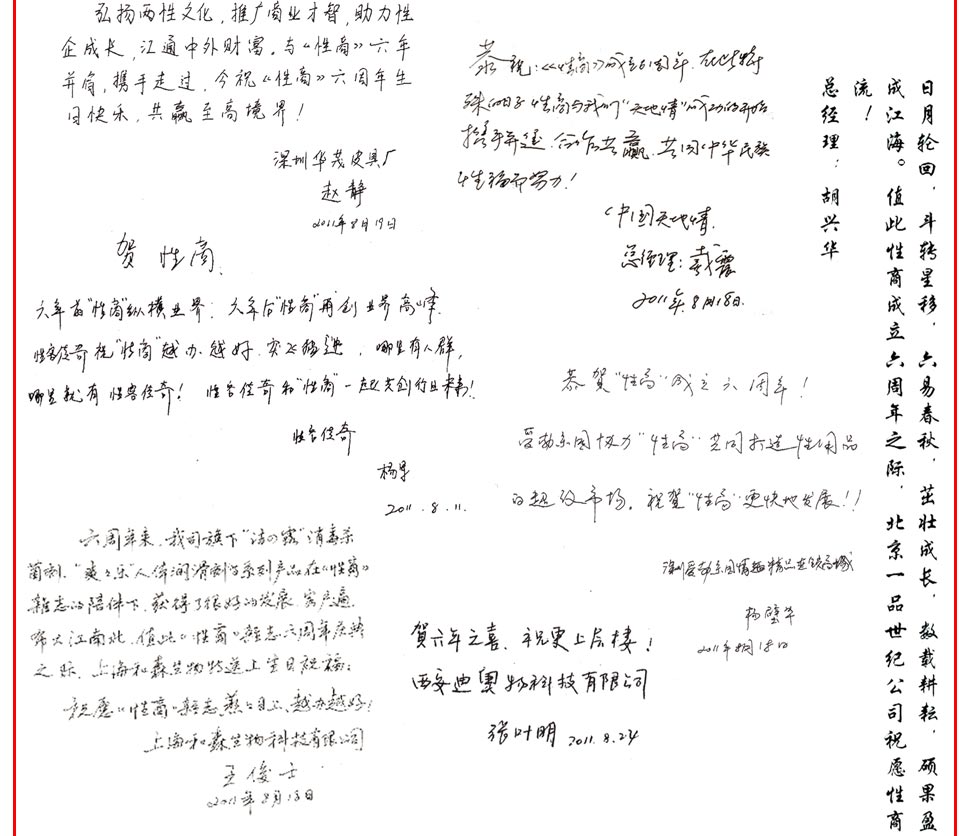 弘扬两性文化，推广商业才智，助力性
企成长，汇通中外财富。与《性商》六年
并肩，携手走过，今祝《性商》六周年生
日快乐，共赢至高境界！
深圳华茂皮具厂
赵静
2011年8月19日
恭祝：《性商》成立6周年，在此特
殊的日子性商与我们"天地情"成功的开始
携手并进，合作共赢，共同中华民族
性福而努力！
中国天地情
总经理：戴震
2011年8月18日.
日月轮回，斗转星移，六易春秋，茁壮成长，数载耕耘，硕果盈
成江海。值此性商成立六周年之际，北京一品世纪公司祝愿性商
流！
总经理：胡兴华
贺 性商.
六年前"性商"纵横业界；六年后"性商"再创业界高峰.
性客传奇祝"性商"越办越好.突飞猛进，哪里有人群，
哪里就有性客传奇！ 性客传奇和"性商"一起共创行业未来！
性客传奇
杨
2011.8.11.
恭贺"性商"成立六周年！
爱勒乐园协力"性商"共同打造性用品
的超级市场，祝贺"性商"更快地发展！！
深圳爱勒乐园情趣精品连锁商城
杨
2011年8月18日
六周年来，我司旗下"洁の露"消毒杀
菌剂，"爽々乐"人体润滑剂等系列产品在《性商》
杂志的陪伴下，获得了很好的发展，客户遍
布大江南北，值此《性商》杂志六周年庆典
之际，上海和森生物特送上生日祝福：
祝愿《性商》杂志，蒸蒸日上，越办越好！
上海和森生物科技有限公司
王俊士
2011年8月18日
贺六年之喜，祝更上层楼！
西安迪奥物科技有限公司
张叶明 2011.8.24